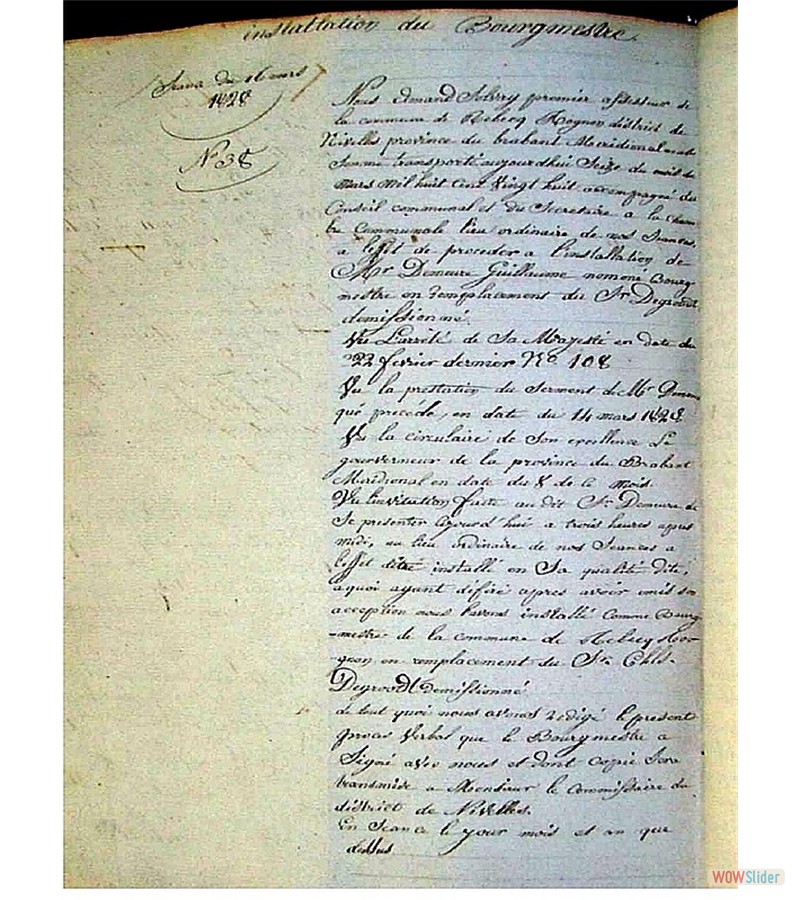 installation du Bourgmestre
Séance du 16 mars
1828
N° 38
Nous Amand Jobry premier assesseur de
la commune de Rebecq Rognon district de
Nivelles province du brabant Meridional
Somme transporté aujourdhui Seize du mois de
mars mil huit Cent Vingt huit accompagné du
Conseil communal et du Secretaire a la Cham
bre Communale lieu ordinaire de nos Seances,
a l'effet de proceder a l'installation de
Mr Demeure Guillaume nommé Bourg-
mestre en remplacement du Sr Degroodt
demissionné.
Vu L'arrêté de Sa Majesté en date du
22 fevrier dernier N° 108
Vu la prestation du Serment de Mr Demeure
qué précéde, en date du 14 mars 1828
Vu la circulaire de Son excellence Le
gouverneur de la province du Brabant
Meridional en date du 8 de ce mois.
Vu l'invitation faite au dit Sr Demeure de
Se presenter aujourd'hui a trois heures apres
midi, au lieu ordinaire de nos Seances a
l'effet d'être installé en Sa qualité dite,
aquoi ayant déféré apres avoir émis son
acception nous l'avons installé comme Bourg
-mestre de la commune de Rebecq Ro-
-gnon en remplacement du Sr
Degroodt demissionné
de tout quoi nous avons redigé le present
proces Verbal que le Bourgmestre a
Signé avec nous et dont copie Sera
transmise a Monsieur le Commissaire du
district de Nivelles.
En Seance le jour mois et an que
dessus
WOWSlider